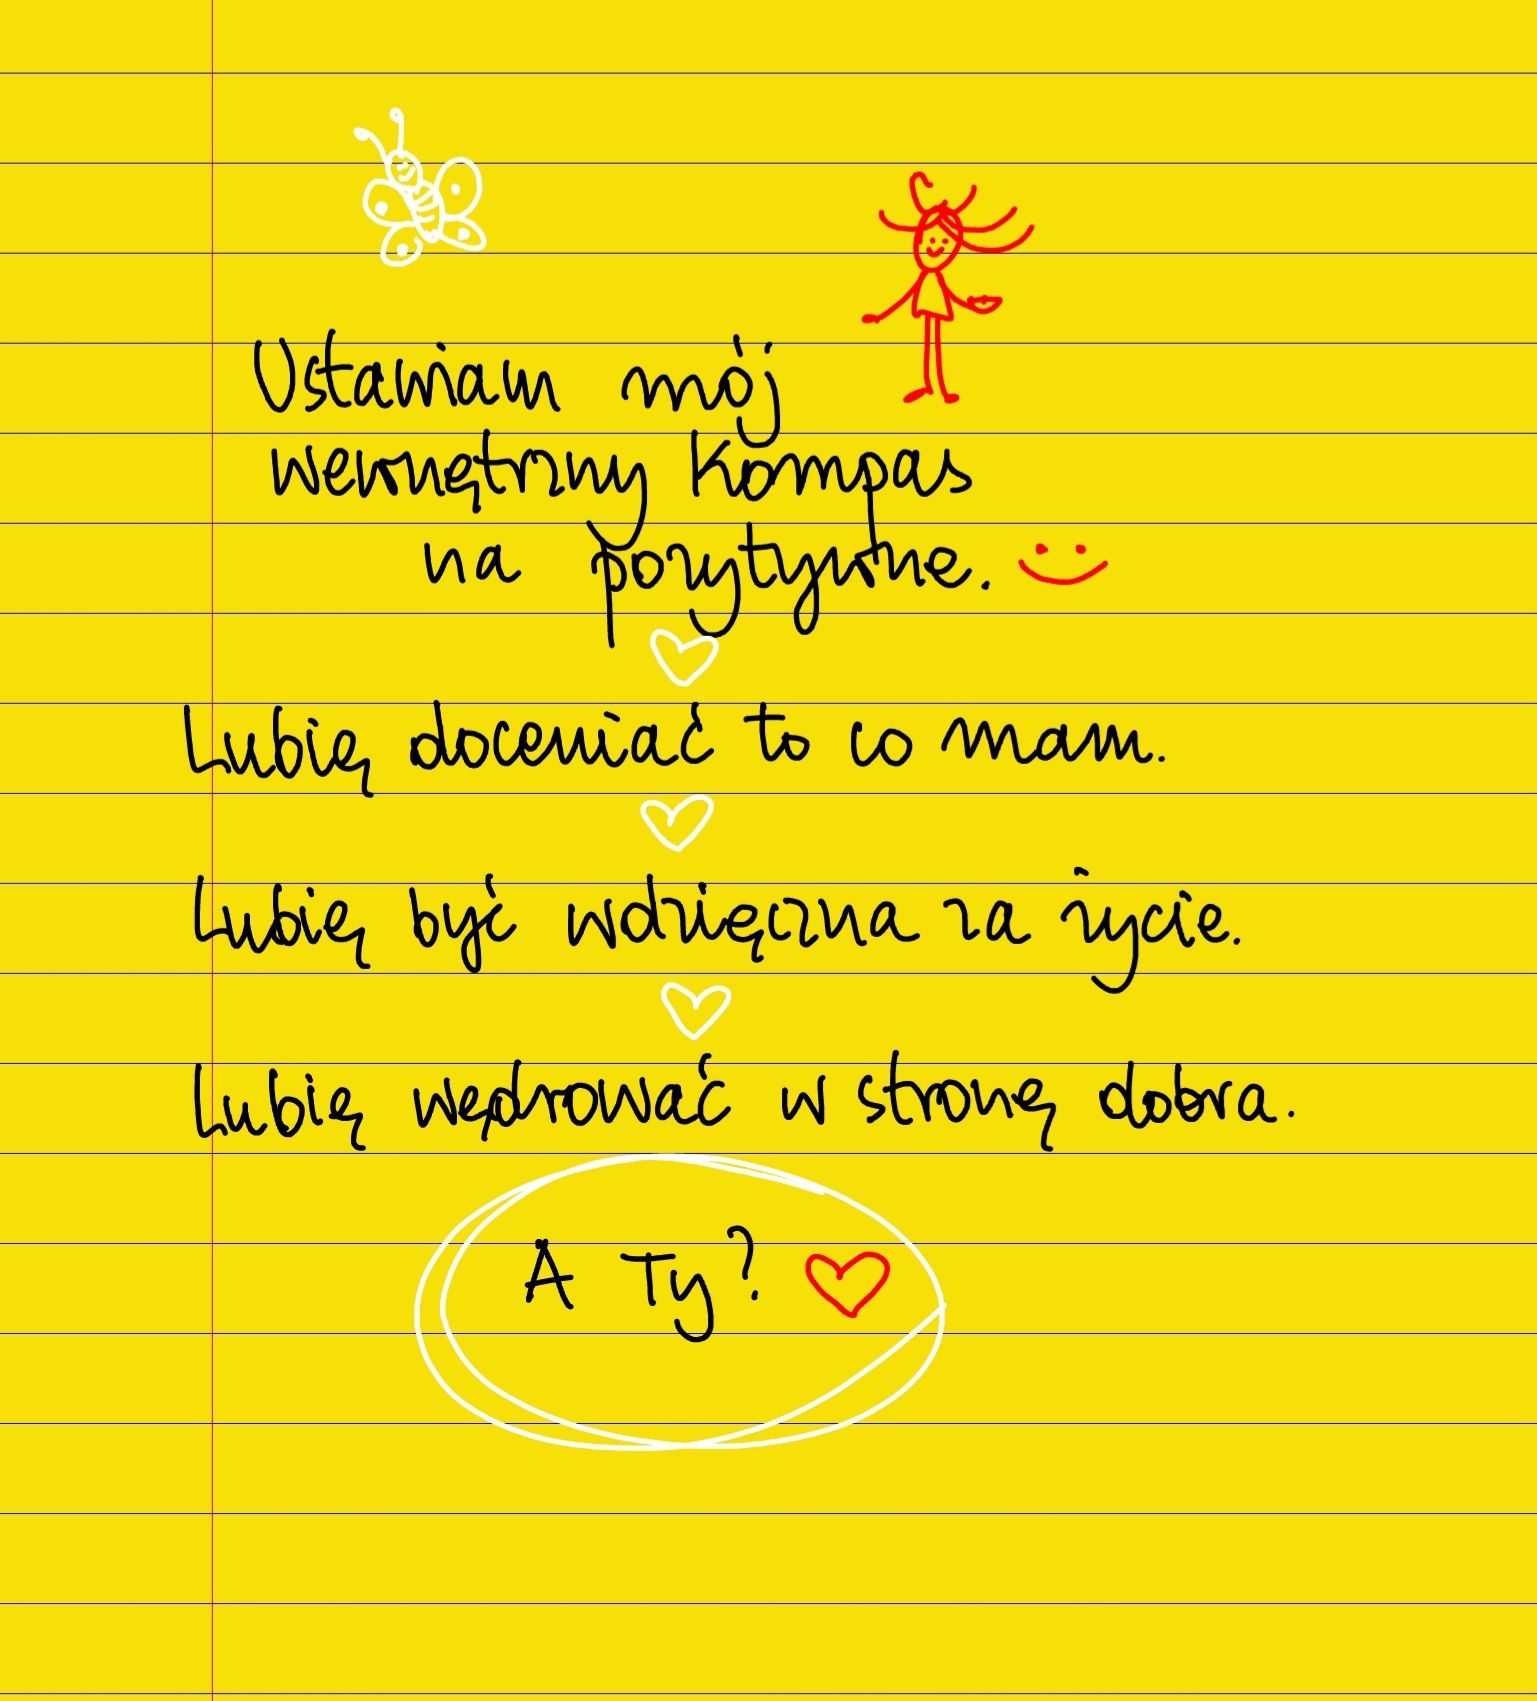 Ustawiam mój
wewnętrzny kompas
na pozytywne.
Lubię doceniać to co mam.
Lubię być wdzięczna za życie.
Lubię wędrować w stronę dobra.
A Ty?